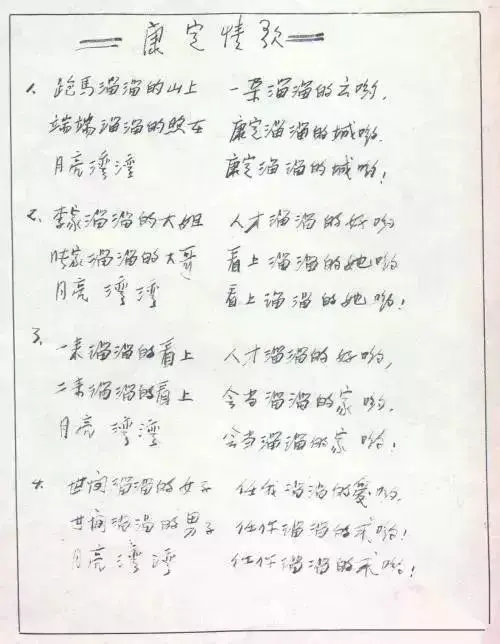 康定情歌
1. 跑馬溜溜的山上 一朵溜溜的云哟,
端端溜溜的照在 康定溜溜的城哟,
月亮灣灣 康定溜溜的城哟!
2. 李家溜溜的大姐 人才溜溜的好哟
张家溜溜的大哥 看上溜溜的她哟
月亮灣灣 看上溜溜的她哟!
3. 一来溜溜的看上 人才溜溜的好哟,
二来溜溜的看上 会当溜溜的家哟,
月亮灣灣 会当溜溜的家哟!
4. 世间溜溜的女子 任我溜溜的愛哟,
世间溜溜的男子 任你溜溜的求哟!
月亮灣灣 任你溜溜的求哟!